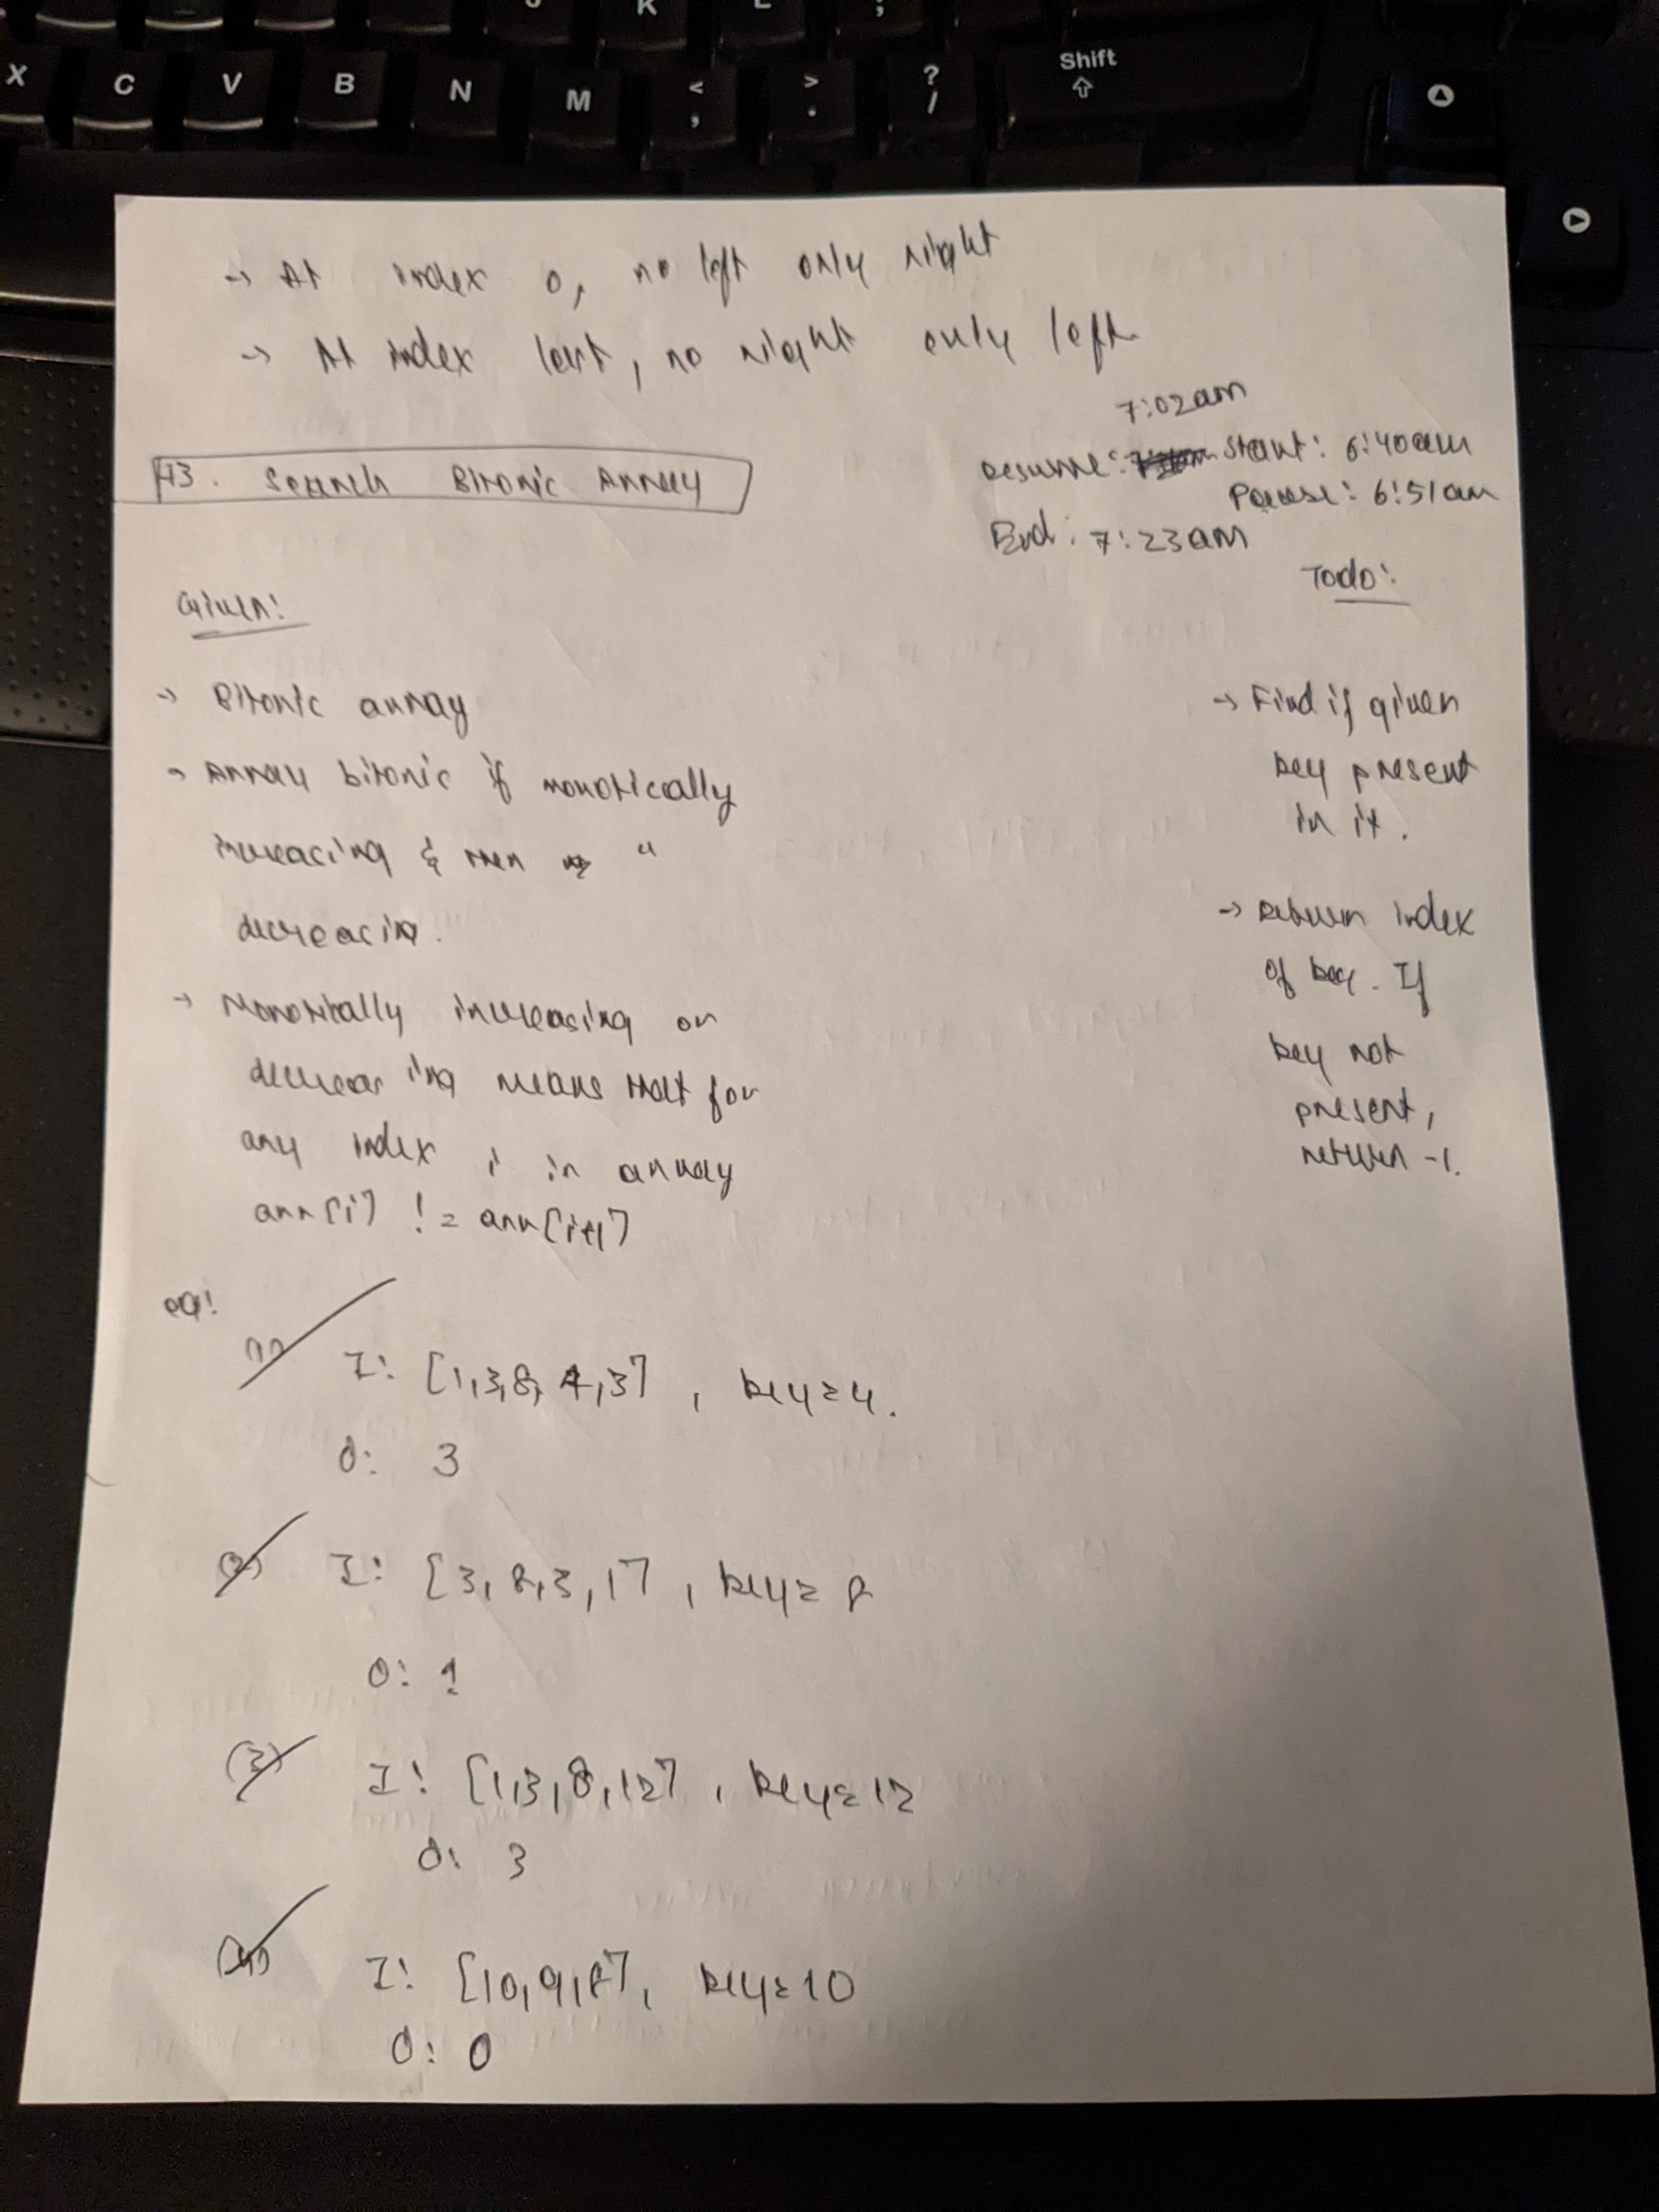 J K L ;
X C V B N M < , > . ? / Shift
→ At index 0, no left only right
→ At index last, no right only left
7:02am
73. Search Bitonic Array
Resume: Start: 6:40am
Pause: 6:51am
End: 7:23am
Given:
→ Bitonic array
→ Array bitonic if monotically
increacing & then "
decreacing.
→ Monotically increasing or
decreasing means that for
any index i in array
arr[i] != arr[i+1]
Todo:
→ Find if given
key present
in it.
→ Return index
of key. If
key not
present,
return -1.
eg:
(1) I: [1,3,8,4,3] , key=4.
O: 3
(2) I: [3,8,3,1] , key= 8
O: 1
(3) I: [1,3,8,12] , key=12
O: 3
(4) I: [10,9,8], key=10
O: 0